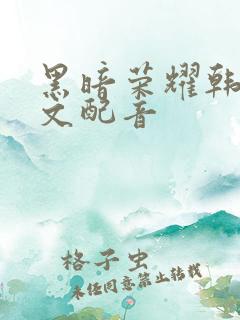 黑暗荣耀韩
文配音
格子虫
未经同意禁止转载